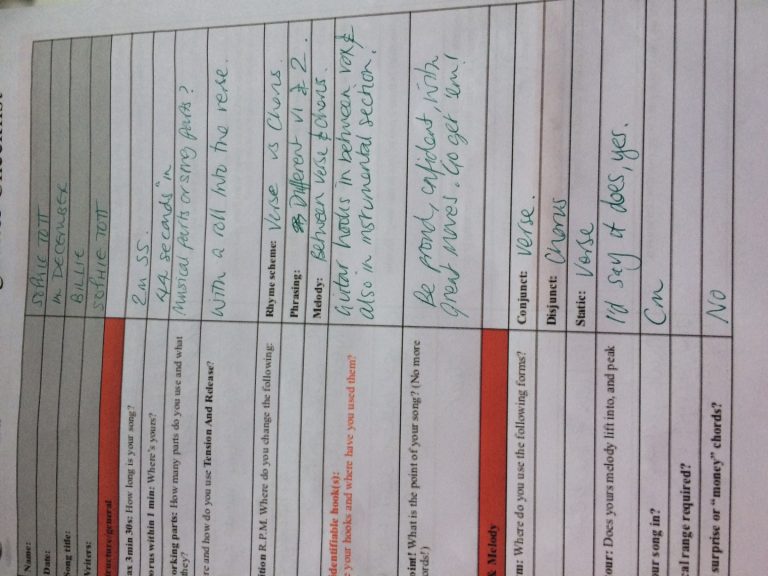 Name: SOPHIE TOTT
Date: IN DECEMBER
Song title: BILLIE
Writers: SOPHIE TOTT
ructure/general
ax 3 min 30s: How long is your song? 2m 55.
orus within 1 min: Where's yours? 44 seconds in
orking parts: How many parts do you use and what Musical parts or song parts?
they?
re and how do you use Tension And Release? With a roll into the verse.
ition R.P.M. Where do you change the following: Rhyme scheme: Verse vs Chorus.
Phrasing: Different v1 & 2.
Melody: Between verse & chorus.
identifiable hook(s): Guitar hooks in between vox &
e your hooks and where have you used them? also in instrumental section.
oint! What is the point of your song? (No more Be proud, confident, with
ords!) great moves. Go get 'em!
& Melody
m: Where do you use the following forms? Conjunct: Verse.
Disjunct: Chorus
Static: Verse
our: Does yours melody lift into, and peak I'd say it does, yes.
ur song in? Cm
al range required?
surprise or "money" chords? NO